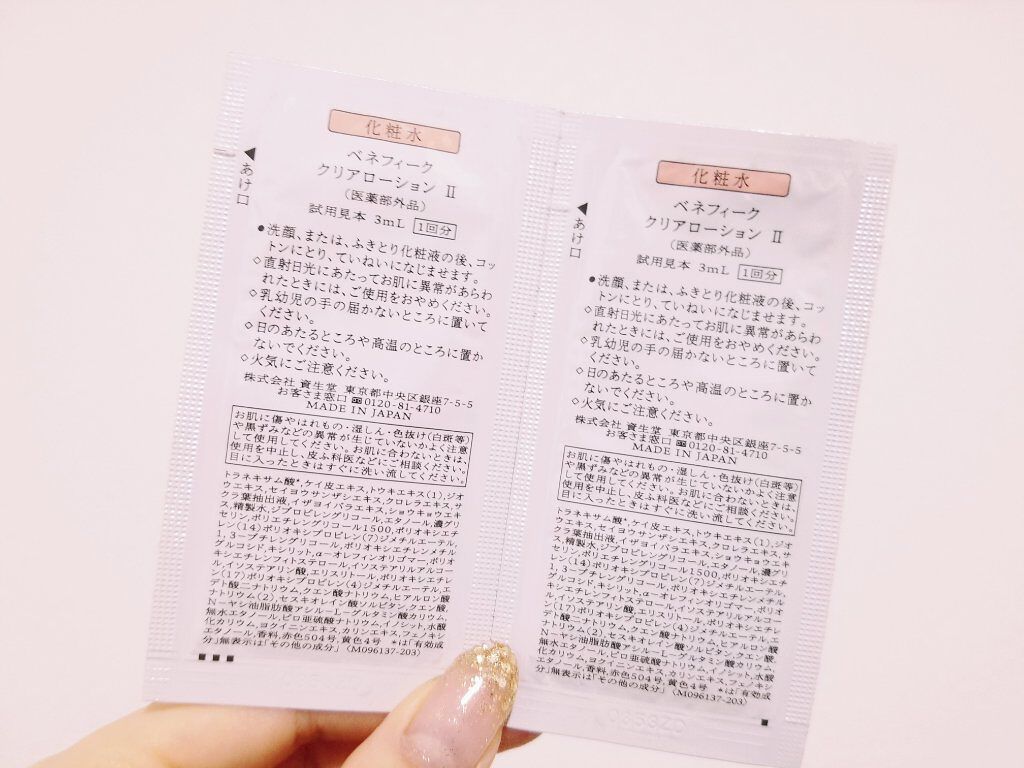 化粧水
ベネフィーク
クリアローション Ⅱ
(医薬部外品)
試用見本 3mL 1回分
◀あけ口
●洗顔、または、ふきとり化粧液の後、コッ
トンにとり、ていねいになじませます。
◇直射日光にあたってお肌に異常があらわ
れたときには、ご使用をおやめください。
◇乳幼児の手の届かないところに置いて
ください。
◇日のあたるところや高温のところに置か
ないでください。
◇火気にご注意ください。
株式会社 資生堂 東京都中央区銀座7-5-5
お客さま窓口 0120-81-4710
MADE IN JAPAN
お肌に傷やはれもの・湿しん・色抜け(白斑等)
や黒ずみなどの異常が生じていないかよく注意
して使用してください。お肌に合わないときは、
使用を中止し、皮ふ科医などにご相談ください。
目に入ったときはすぐに洗い流してください。
トラネキサム酸*,ケイ皮エキス,トウキエキス(1),ジオ
ウエキス,セイヨウサンザシエキス,クロレラエキス,サ
クラ葉抽出液,イザヨイバラエキス,ショウキョウエキ
ス,精製水,ジプロピレングリコール,エタノール,濃グリ
セリン,ポリエチレングリコール1500,ポリオキシエチ
レン(14)ポリオキシプロピレン(7)ジメチルエーテル,
1,3-ブチレングリコール,ポリオキシエチレンメチル
グルコシド,キシリット,α-オレフィンオリゴマー,ポリオ
キシエチレンフィトステロール,イソステアリルアルコー
ル,イソステアリン酸,エリスリトール,ポリオキシエチレ
ン(17)ポリオキシプロピレン(4)ジメチルエーテル,エ
デト酸二ナトリウム,クエン酸ナトリウム,ヒアルロン酸
ナトリウム(2),セスキオレイン酸ソルビタン,クエン酸,
N-ヤシ油脂肪酸アシル-L-グルタミン酸カリウム,
無水エタノール,ピロ亜硫酸ナトリウム,イノシット,水酸
化カリウム,ヨクイニンエキス,カリンエキス,フェノキシ
エタノール,香料,赤色504号,黄色4号 *は「有効成
分」無表示は「その他の成分」〈M096137-203〉
化粧水
ベネフィーク
クリアローション Ⅱ
(医薬部外品)
試用見本 3mL 1回分
◀あけ口
●洗顔、または、ふきとり化粧液の後、コッ
トンにとり、ていねいになじませます。
◇直射日光にあたってお肌に異常があらわ
れたときには、ご使用をおやめください。
◇乳幼児の手の届かないところに置いて
ください。
◇日のあたるところや高温のところに置か
ないでください。
◇火気にご注意ください。
株式会社 資生堂 東京都中央区銀座7-5-5
お客さま窓口 0120-81-4710
MADE IN JAPAN
お肌に傷やはれもの・湿しん・色抜け(白斑等)
や黒ずみなどの異常が生じていないかよく注意
して使用してください。お肌に合わないときは、
使用を中止し、皮ふ科医などにご相談ください。
目に入ったときはすぐに洗い流してください。
トラネキサム酸*,ケイ皮エキス,トウキエキス(1),ジオ
ウエキス,セイヨウサンザシエキス,クロレラエキス,サ
クラ葉抽出液,イザヨイバラエキス,ショウキョウエキ
ス,精製水,ジプロピレングリコール,エタノール,濃グリ
セリン,ポリエチレングリコール1500,ポリオキシエチ
レン(14)ポリオキシプロピレン(7)ジメチルエーテル,
1,3-ブチレングリコール,ポリオキシエチレンメチル
グルコシド,キシリット,α-オレフィンオリゴマー,ポリオ
キシエチレンフィトステロール,イソステアリルアルコー
ル,イソステアリン酸,エリスリトール,ポリオキシエチレ
ン(17)ポリオキシプロピレン(4)ジメチルエーテル,エ
デト酸二ナトリウム,クエン酸ナトリウム,ヒアルロン酸
ナトリウム(2),セスキオレイン酸ソルビタン,クエン酸,
N-ヤシ油脂肪酸アシル-L-グルタミン酸カリウム,
無水エタノール,ピロ亜硫酸ナトリウム,イノシット,水酸
化カリウム,ヨクイニンエキス,カリンエキス,フェノキシ
エタノール,香料,赤色504号,黄色4号 *は「有効成
分」無表示は「その他の成分」〈M096137-203〉